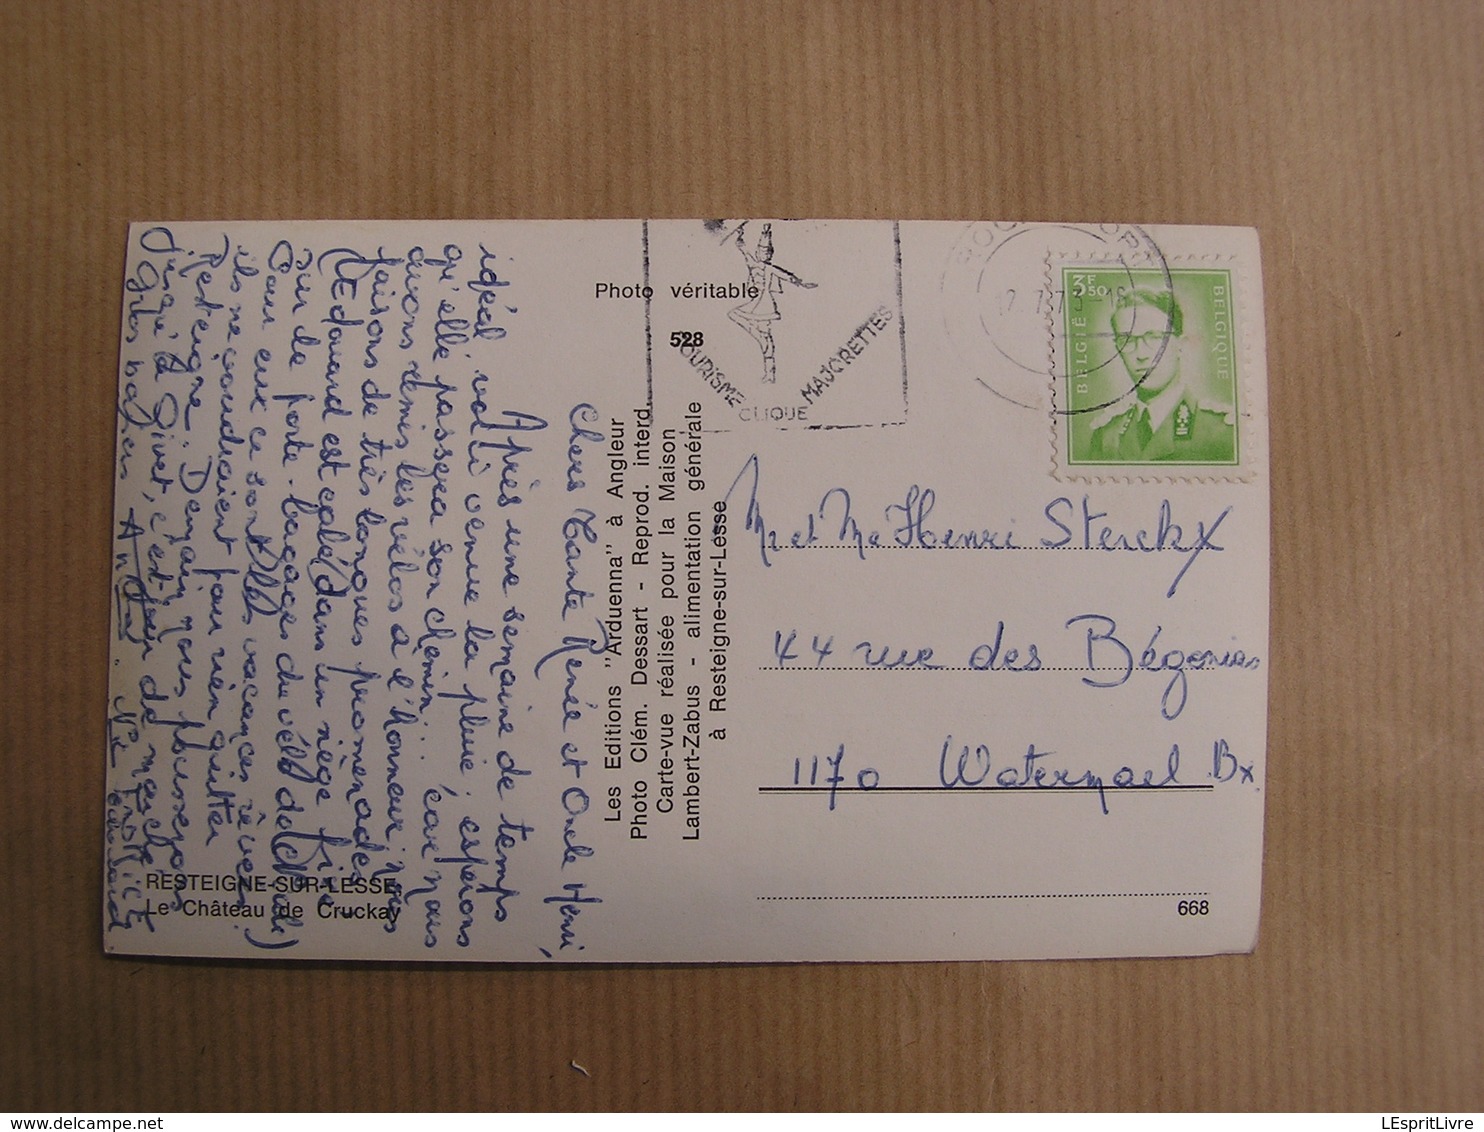 Chers Tante Renée et Oncle Henri,
Après une semaine de temps
idéal voici venue la pluie : espérons
qu'elle passera son chemin... car nous
avons remis les vélos à l'honneur; nous
faisons de très longues promenades.
(Edouard est calé dans un siège fixé
sur le porte-bagages du vélo de
Pour eux ce sont les vacances rêvées.
ils ne voudraient pour rien quitter
Resteigne. Demain nous pousserons
jusqu'à Givet, c'est jour de marché.
Gros baisers
Edouard
Photo véritable
528
Les Editions "Arduenna" à Angleur
Photo Clém. Dessart - Reprod. interd.
Carte-vue réalisée pour la Maison
Lambert-Zabus - alimentation générale
à Resteigne-sur-Lesse
RESTEIGNE-SUR-LESSE
Le Château de Cruckay
TOURISME
CLIQUE
MAJORETTES
3F50
BELGIË
BELGIQUE
Mr et Me Henri Sterckx
44 rue des Bégonias
1170 Watermael Bx
668
LEspritLivre